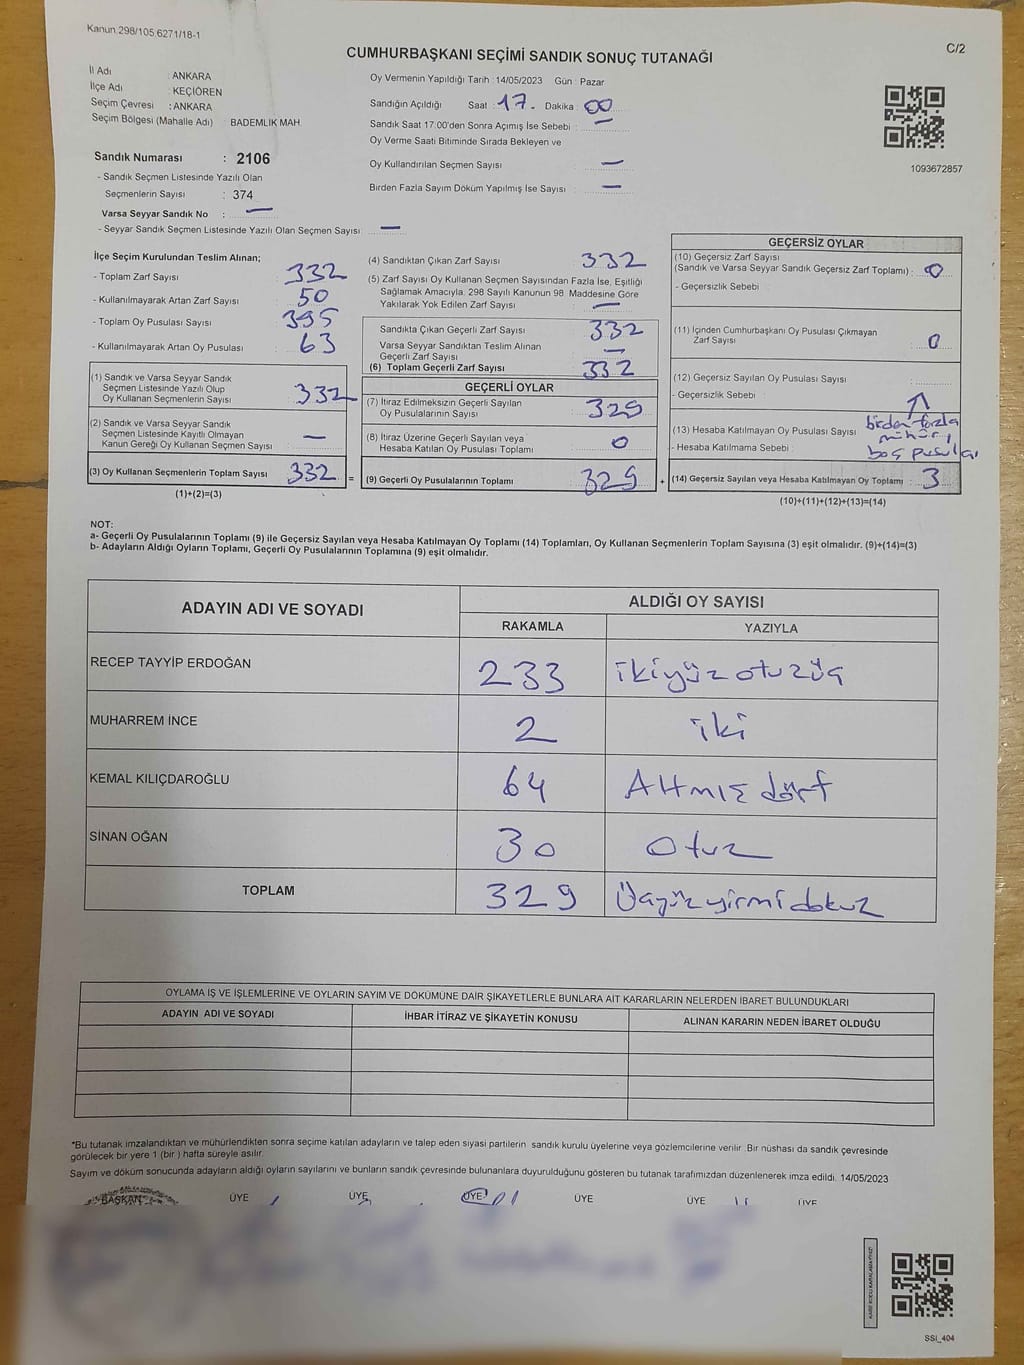 Kanun.298/105,6271/18-1
C/2
CUMHURBAŞKANI SEÇİMİ SANDIK SONUÇ TUTANAĞI
İl Adı : ANKARA
İlçe Adı : KEÇİÖREN
Seçim Çevresi : ANKARA
Seçim Bölgesi (Mahalle Adı) BADEMLİK MAH.
Sandık Numarası : 2106
- Sandık Seçmen Listesinde Yazılı Olan
Seçmenlerin Sayısı : 374
Varsa Seyyar Sandık No : —
- Seyyar Sandık Seçmen Listesinde Yazılı Olan Seçmen Sayısı: —
Oy Vermenin Yapıldığı Tarih : 14/05/2023 Gün : Pazar
Sandığın Açıldığı Saat : 17. Dakika : 00
Sandık Saat 17:00'den Sonra Açımış İse Sebebi : —
Oy Verme Saati Bitiminde Sırada Bekleyen ve
Oy Kullandırılan Seçmen Sayısı —
Birden Fazla Sayım Döküm Yapılmış İse Sayısı : —
1093672857
İlçe Seçim Kurulundan Teslim Alınan;
- Toplam Zarf Sayısı : 332
- Kullanılmayarak Artan Zarf Sayısı : 50
- Toplam Oy Pusulası Sayısı : 395
- Kullanılmayarak Artan Oy Pusulası : 63
(1) Sandık ve Varsa Seyyar Sandık
Seçmen Listesinde Yazılı Olup
Oy Kullanan Seçmenlerin Sayısı : 332
(2) Sandık ve Varsa Seyyar Sandık
Seçmen Listesinde Kayıtlı Olmayan
Kanun Gereği Oy Kullanan Seçmen Sayısı : —
(3) Oy Kullanan Seçmenlerin Toplam Sayısı : 332 =
(1)+(2)=(3)
(4) Sandıktan Çıkan Zarf Sayısı : 332
(5) Zarf Sayısı Oy Kullanan Seçmen Sayısından Fazla İse, Eşitliği
Sağlamak Amacıyla, 298 Sayılı Kanunun 98. Maddesine Göre
Yakılarak Yok Edilen Zarf Sayısı : —
Sandıkta Çıkan Geçerli Zarf Sayısı : 332
Varsa Seyyar Sandıktan Teslim Alınan
Geçerli Zarf Sayısı : —
(6) Toplam Geçerli Zarf Sayısı : 332
GEÇERLİ OYLAR
(7) İtiraz Edilmeksizin Geçerli Sayılan
Oy Pusulalarının Sayısı : 329
(8) İtiraz Üzerine Geçerli Sayılan veya
Hesaba Katılan Oy Pusulası Toplamı : 0
(9) Geçerli Oy Pusulalarının Toplamı : 329 +
GEÇERSİZ OYLAR
(10) Geçersiz Zarf Sayısı
(Sandık ve Varsa Seyyar Sandık Geçersiz Zarf Toplamı) : 0
- Geçersizlik Sebebi :
(11) İçinden Cumhurbaşkanı Oy Pusulası Çıkmayan
Zarf Sayısı : 0
(12) Geçersiz Sayılan Oy Pusulası Sayısı :
- Geçersizlik Sebebi :
(13) Hesaba Katılmayan Oy Pusulası Sayısı : birden fazla
mühür,
- Hesaba Katılmama Sebebi : boş pusula
(14) Geçersiz Sayılan veya Hesaba Katılmayan Oy Toplamı : 3
(10)+(11)+(12)+(13)=(14)
NOT:
a- Geçerli Oy Pusulalarının Toplamı (9) ile Geçersiz Sayılan veya Hesaba Katılmayan Oy Toplamı (14) Toplamları, Oy Kullanan Seçmenlerin Toplam Sayısına (3) eşit olmalıdır. (9)+(14)=(3)
b- Adayların Aldığı Oyların Toplamı, Geçerli Oy Pusulalarının Toplamına (9) eşit olmalıdır.
ADAYIN ADI VE SOYADI
ALDIĞI OY SAYISI
RAKAMLA YAZIYLA
RECEP TAYYİP ERDOĞAN 233 ikiyüzotuzüç
MUHARREM İNCE 2 iki
KEMAL KILIÇDAROĞLU 64 Altmış dört
SİNAN OĞAN 30 Otuz
TOPLAM 329 Üçyüzyirmidokuz
OYLAMA İŞ VE İŞLEMLERİNE VE OYLARIN SAYIM VE DÖKÜMÜNE DAİR ŞİKAYETLERLE BUNLARA AİT KARARLARIN NELERDEN İBARET BULUNDUKLARI
ADAYIN ADI VE SOYADI İHBAR İTİRAZ VE ŞİKAYETİN KONUSU ALINAN KARARIN NEDEN İBARET OLDUĞU
*Bu tutanak imzalandıktan ve mühürlendikten sonra seçime katılan adayların ve talep eden siyasi partilerin sandık kurulu üyelerine veya gözlemcilerine verilir. Bir nüshası da sandık çevresinde
görülecek bir yere 1 (bir ) hafta süreyle asılır.
Sayım ve döküm sonucunda adayların aldığı oyların sayılarını ve bunların sandık çevresinde bulunanlara duyurulduğunu gösteren bu tutanak tarafımızdan düzenlenerek imza edildi. 14/05/2023
BAŞKAN ÜYE ÜYE ÜYE ÜYE ÜYE ÜYE
SSI_404